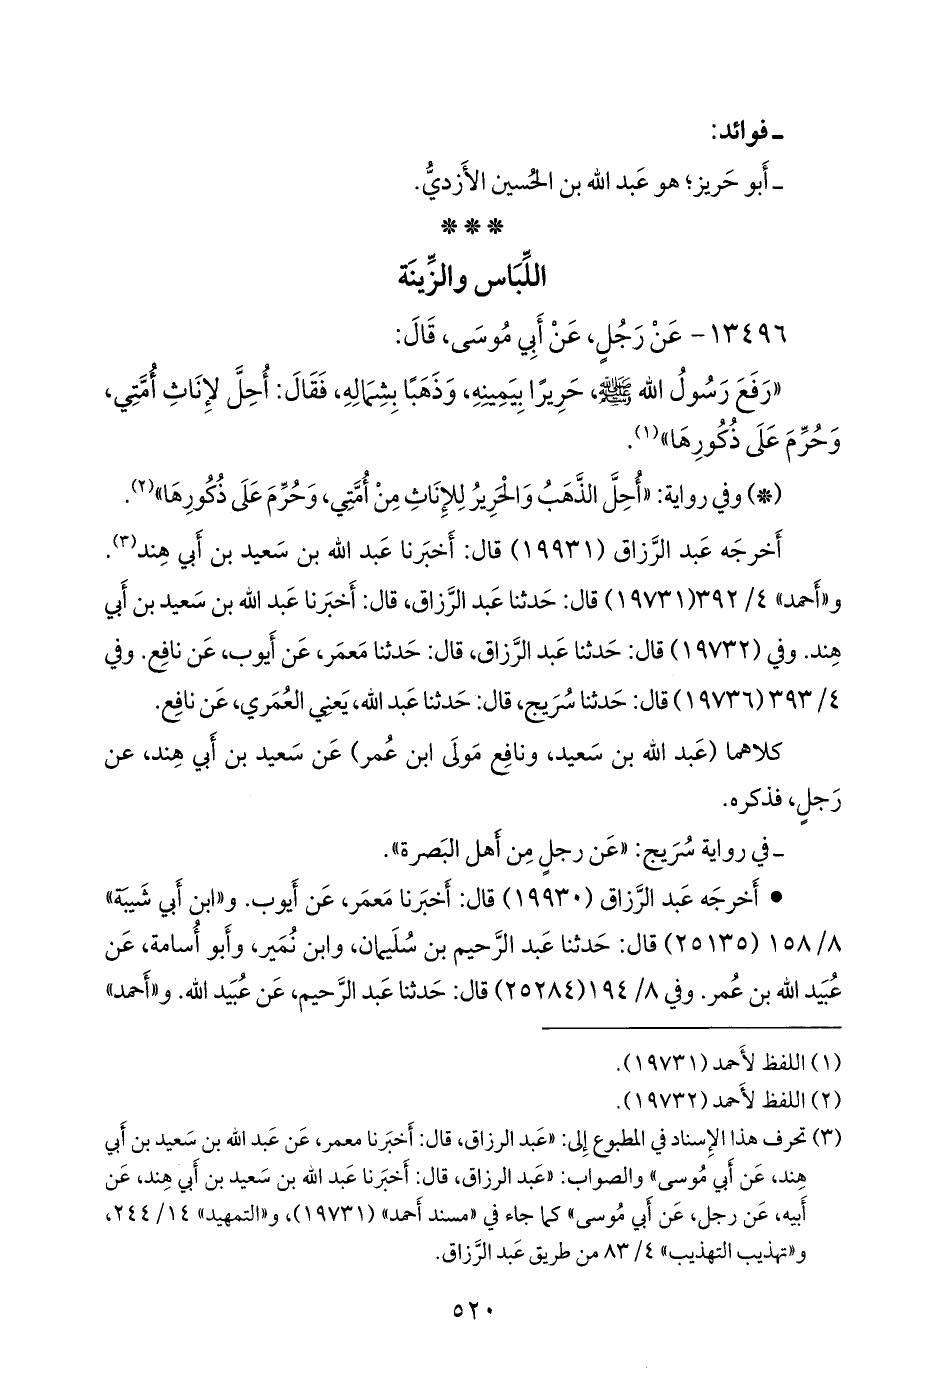 ـ فوائد:
ـ أَبو حَريز؛ هو عَبد الله بن الحُسين الأَزديُّ.
* * *
اللِّبَاس والزِّينَة
١٣٤٩٦- عَنْ رَجُلٍ، عَنْ أَبِي مُوسَى، قَالَ:
«رَفَعَ رَسُولُ الله ﷺ، حَرِيرًا بِيَمِينِهِ، وَذَهَبًا بِشِمَالِهِ، فَقَالَ: أُحِلَّ لإِنَاثِ أُمَّتِي،
وَحُرِّمَ عَلَى ذُكُورِهَا»(١).
(*) وفي رواية: «أُحِلَّ الذَّهَبُ وَالحَرِيرُ لِلإِنَاثِ مِنْ أُمَّتِي، وَحُرِّمَ عَلَى ذُكُورِهَا»(٢).
أَخرجَه عَبد الرَّزاق (١٩٩٣١) قال: أَخبَرنا عَبد الله بن سَعيد بن أَبي هِند(٣).
و«أَحمد» ٤/ ٣٩٢(١٩٧٣١) قال: حَدثنا عَبد الرَّزاق، قال: أَخبَرنا عَبد الله بن سَعيد بن أَبي
هِند. وفي (١٩٧٣٢) قال: حَدثنا عَبد الرَّزاق، قال: حَدثنا مَعمَر، عَن أَيوب، عَن نافِع. وفي
٤/ ٣٩٣ (١٩٧٣٦) قال: حَدثنا سُرَيج، قال: حَدثنا عَبد الله، يَعنِي العُمَري، عَن نافِع.
كلاهما (عَبد الله بن سَعيد، ونافِع مَولَى ابن عُمر) عَن سَعيد بن أَبي هِند، عن
رَجلٍ، فذكره.
ـ في رواية سُرَيج: «عَن رجلٍ مِن أَهل البَصرة».
• أَخرجَه عَبد الرَّزاق (١٩٩٣٠) قال: أَخبَرنا مَعمَر، عَن أَيوب. و«ابن أَبي شَيبَة»
٨/ ١٥٨ (٢٥١٣٥) قال: حَدثنا عَبد الرحيم بن سُلَيمان، وابن نُمَير، وأَبو أُسامة، عَن
عُبَيد الله بن عُمر. وفي ٨/ ١٩٤(٢٥٢٨٤) قال: حَدثنا عَبد الرَّحيم، عَن عُبَيد الله. و«أَحمد»
(١) اللفظ لأَحمد (١٩٧٣١).
(٢) اللفظ لأَحمد (١٩٧٣٢).
(٣) تحرف هذا الإِسناد في المطبوع إِلى: «عَبد الرزاق، قال: أَخبَرنا معمر، عَن عَبد الله بن سَعيد بن أَبي
هِند، عَن أَبي مُوسى» والصواب: «عَبد الرزاق، قال: أَخبَرنا عَبد الله بن سَعيد بن أَبي هِند، عَن
أَبيه، عَن رجل، عَن أَبي مُوسى» كما جاء في «مسند أَحمد» (١٩٧٣١)، و«التمهيد» ١٤/ ٢٤٤،
و«تهذيب التهذيب» ٤/ ٨٣ من طريق عَبد الرَّزاق.
٥٢٠